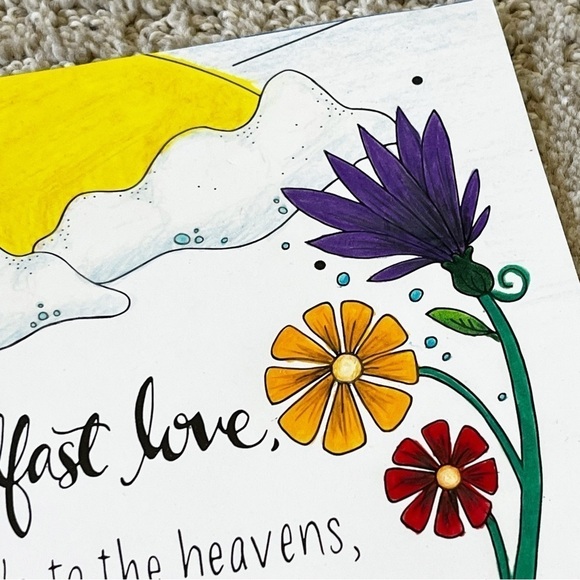 fast love,
to the heavens,